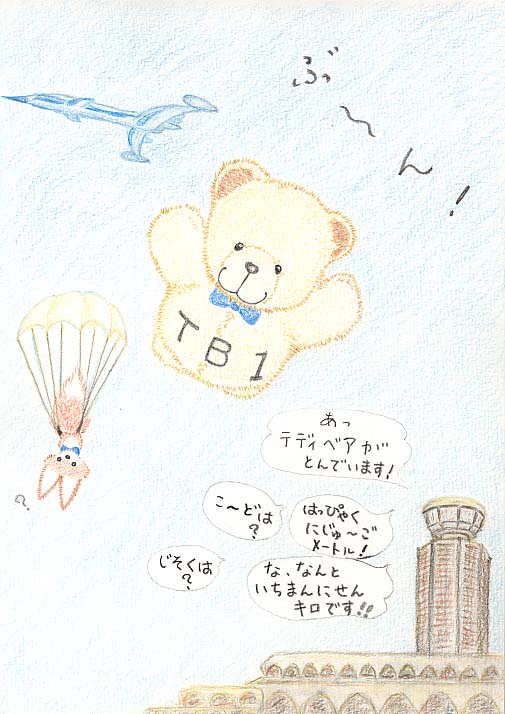 ぶっ〜ん!
TB1
あっ
テディベアが
とんでいます!
こ〜どは
?
はっぴゃく
にじゅ〜ご
メートル!
じそくは
?
な、なんと
いちまんにせん
キロです!!
?